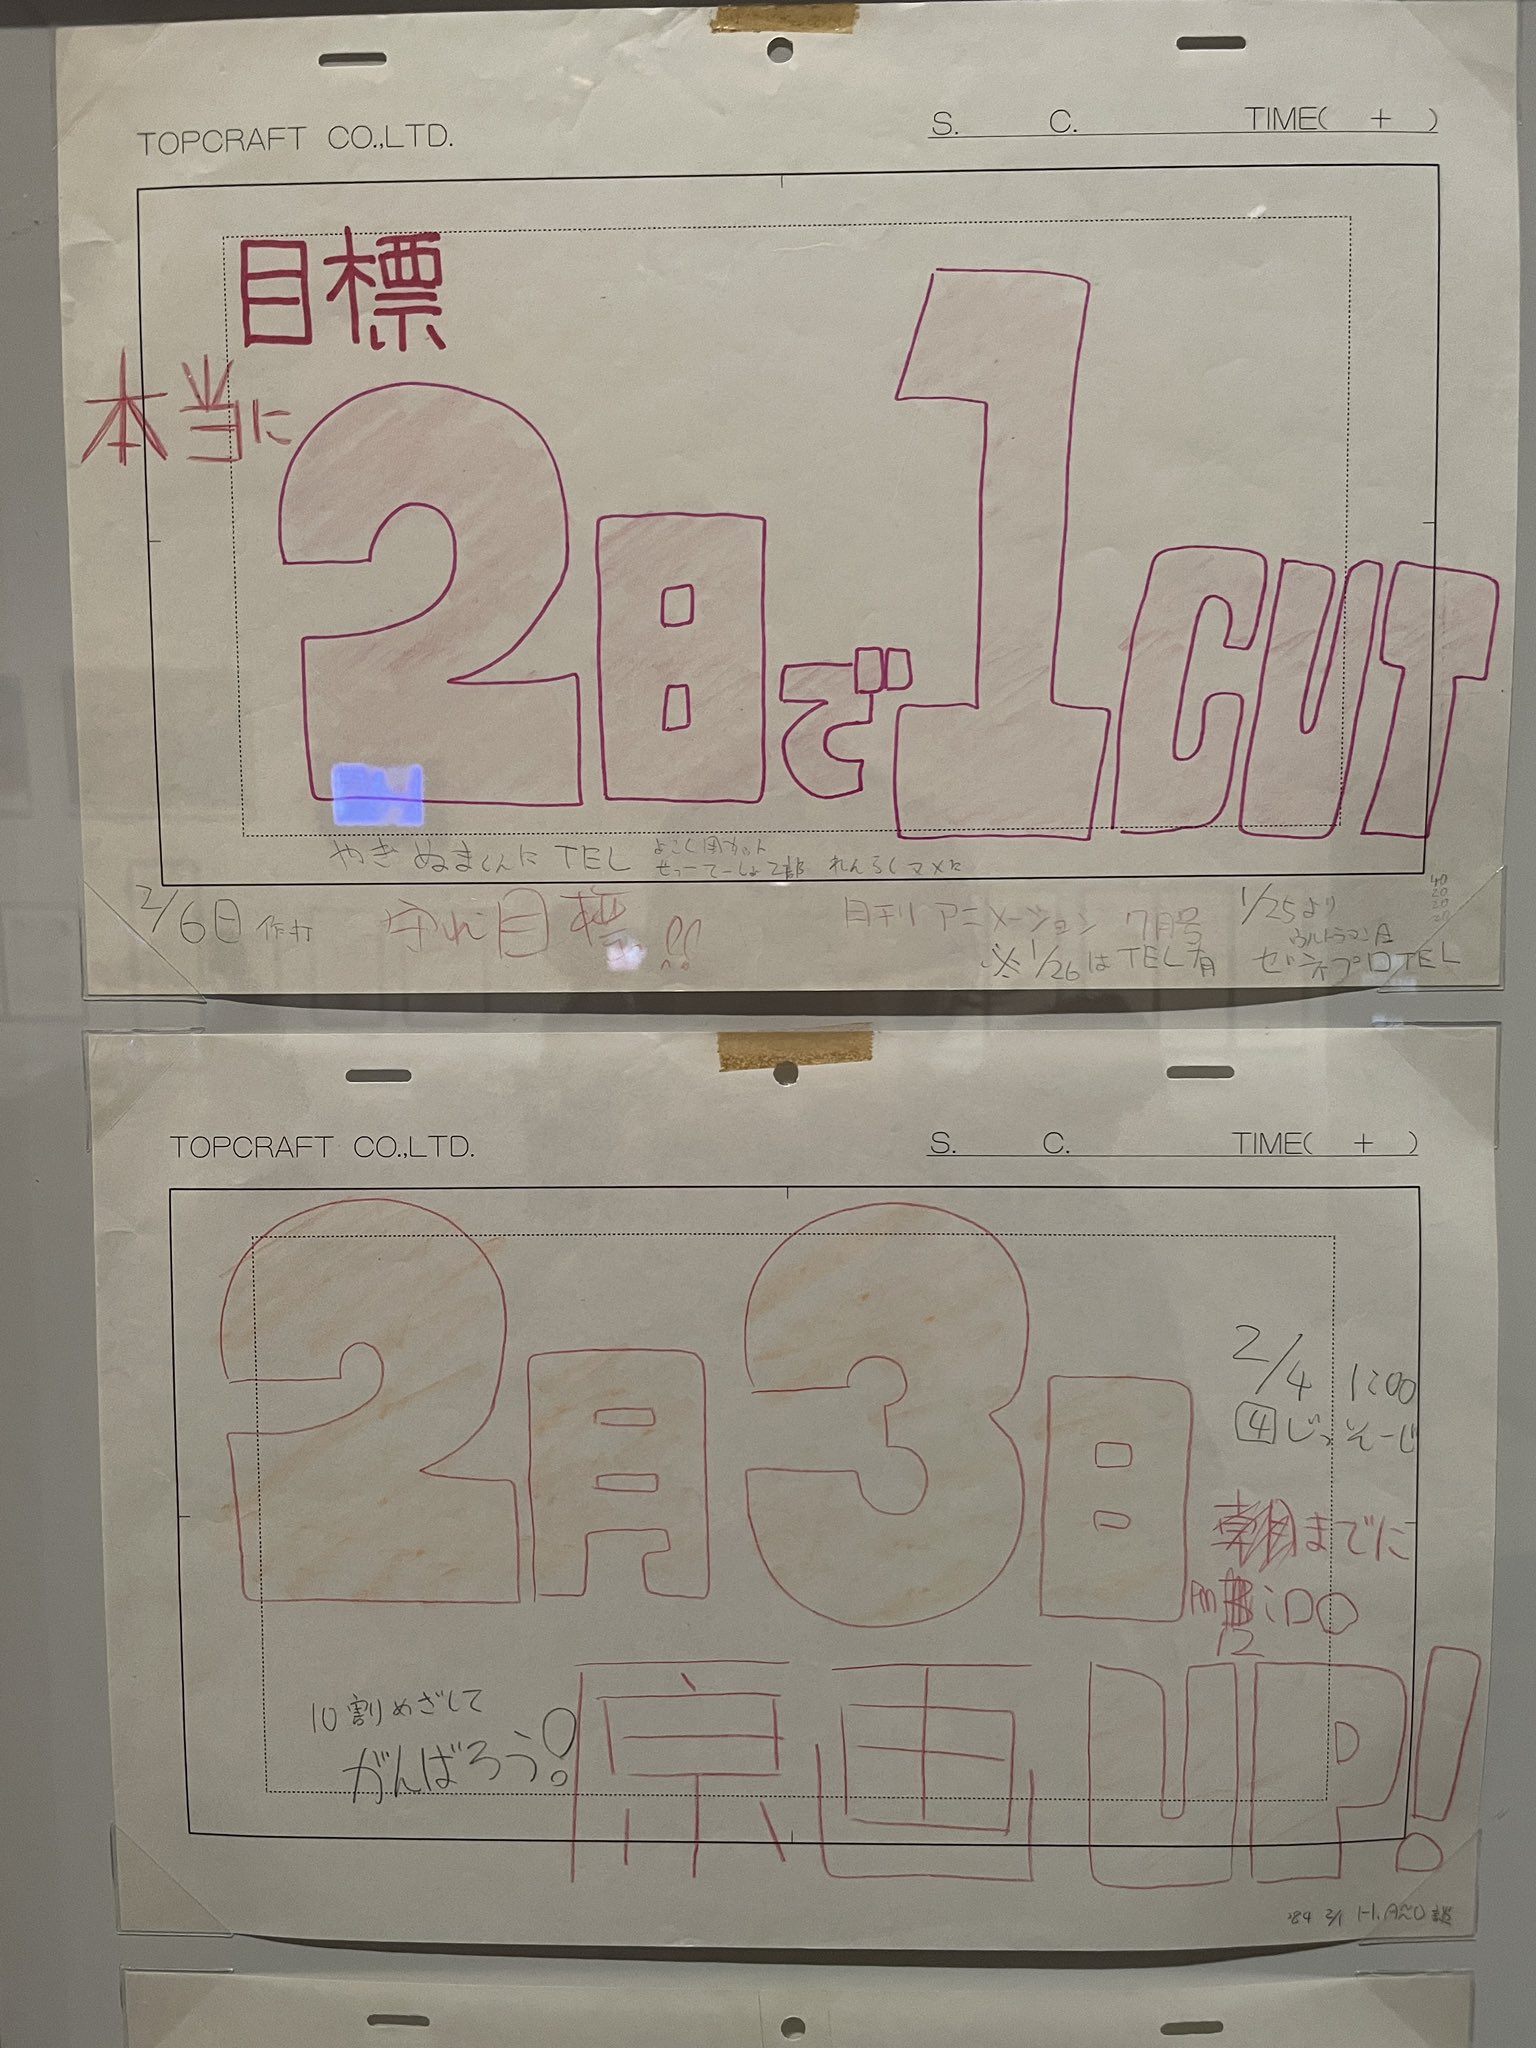 TOPCRAFT CO.,LTD.
S. C. TIME( + )
目標
本当に
2日で1CUT
やぎぬまくんに TEL
2/6日 作打
守れ目標!!
月刊アニメーション 7月号
※1/26はTEL有
1/25より
ウルトラマンA
ゼネプロTEL
TOPCRAFT CO.,LTD.
S. C. TIME( + )
2月3日
2/4 1:00
4 じっそーじ
朝までに
AM
12
:00
10割めざして
がんばろう!
原画UP!
'84 2/1 H.ANNO